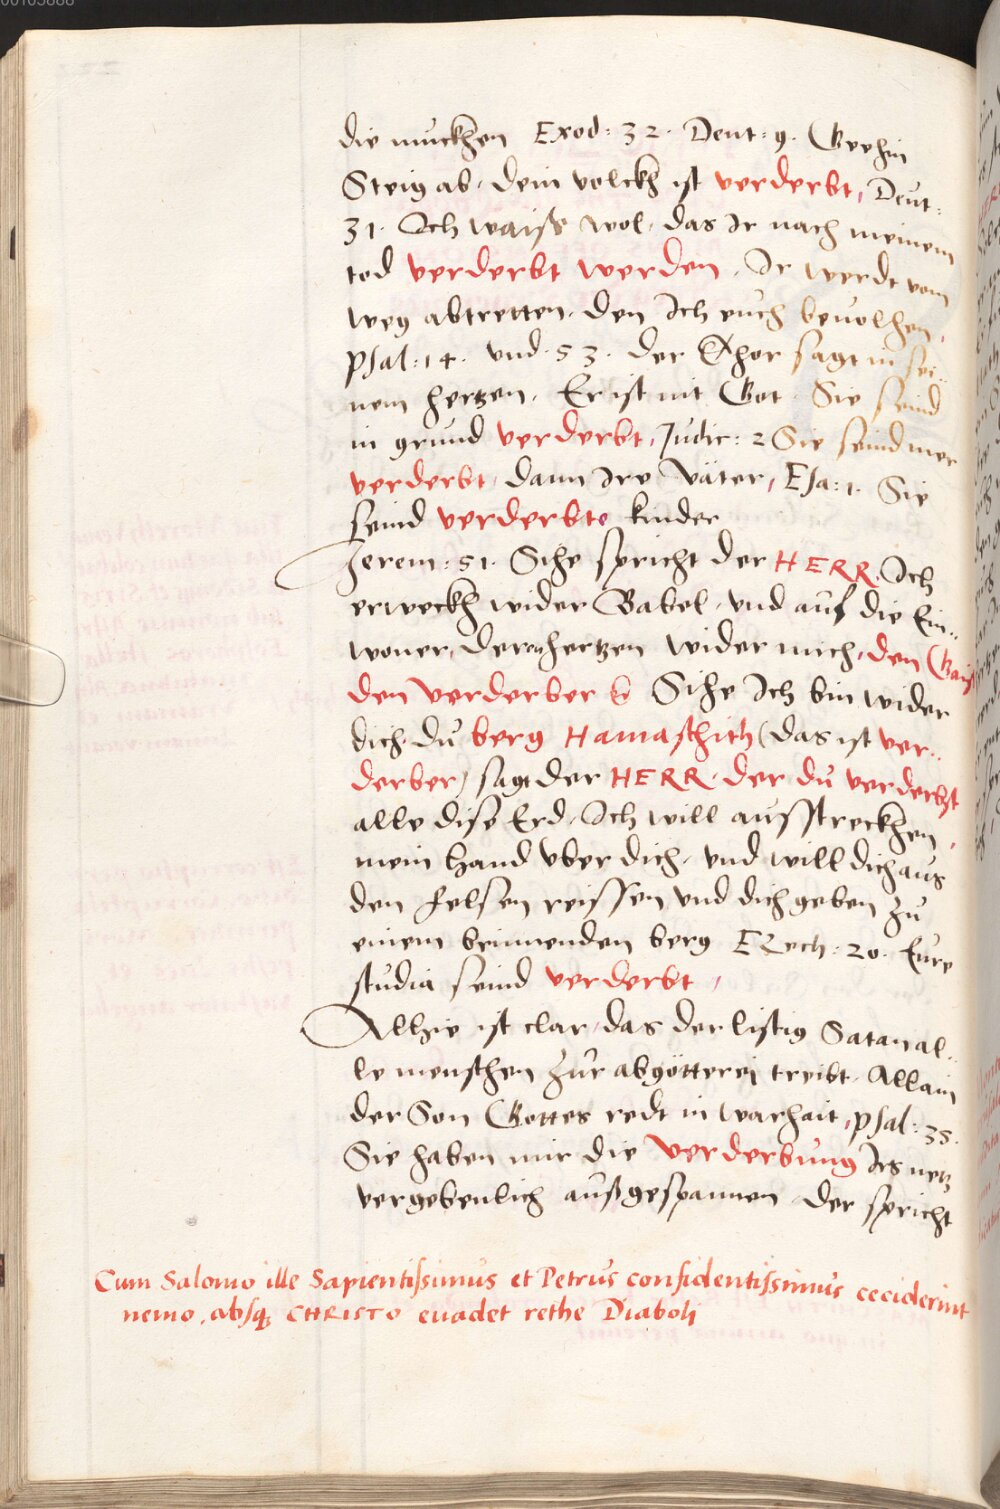 die muckhen Exod: 32. Deut: 9. Geehin
Steig ab, dein volckh ist verderbt, Deut:
31. Ich waiss wol, das Ir nach meinem
tod verderbt werden, Ir werdt vom
weg abtretten, den Ich euch beuolhen,
Psal: 14. vnd. 53. der Thor sagt in sei-
nem hertzen, Er ist nit Got. Sie seind
in grund verderbt, Judic: 2 Sie seind mer
verderbt, dann Ire Väter, Esa: 1. Sie
seind verderbte kinder
Jerem: 51. Sihe spricht der HERR, Ich
erweckh wider Babel, vnd auf die Ein-
woner, deren hertzen wider mich, den
den verderber Sihe Ich bin wider
dich du berg Hamaschith (das ist ver-
derber) sagt der HERR, der du verderbst
alle dise Erd, Ich will ausstreckhen,
mein Hand vber dich, vnd will dich aus
den felsen reissen vnd dich geben zu
einem brinnenden berg Ezech: 20. Eure
studia seind verderbt,
Allhie ist clar, das der listig Satan al-
le menschen zur abgötterei treibt, Allain
der Son Gottes redt in warhait, Psal: 35.
Sie haben mir die verderbung Irs netz
vergebenlich aussgespannen, der spricht
Cum Salomo ille Sapientissimus et Petrus confidentissimus ceciderint
nemo, absq; CHRISTO euadet rethe Diaboli